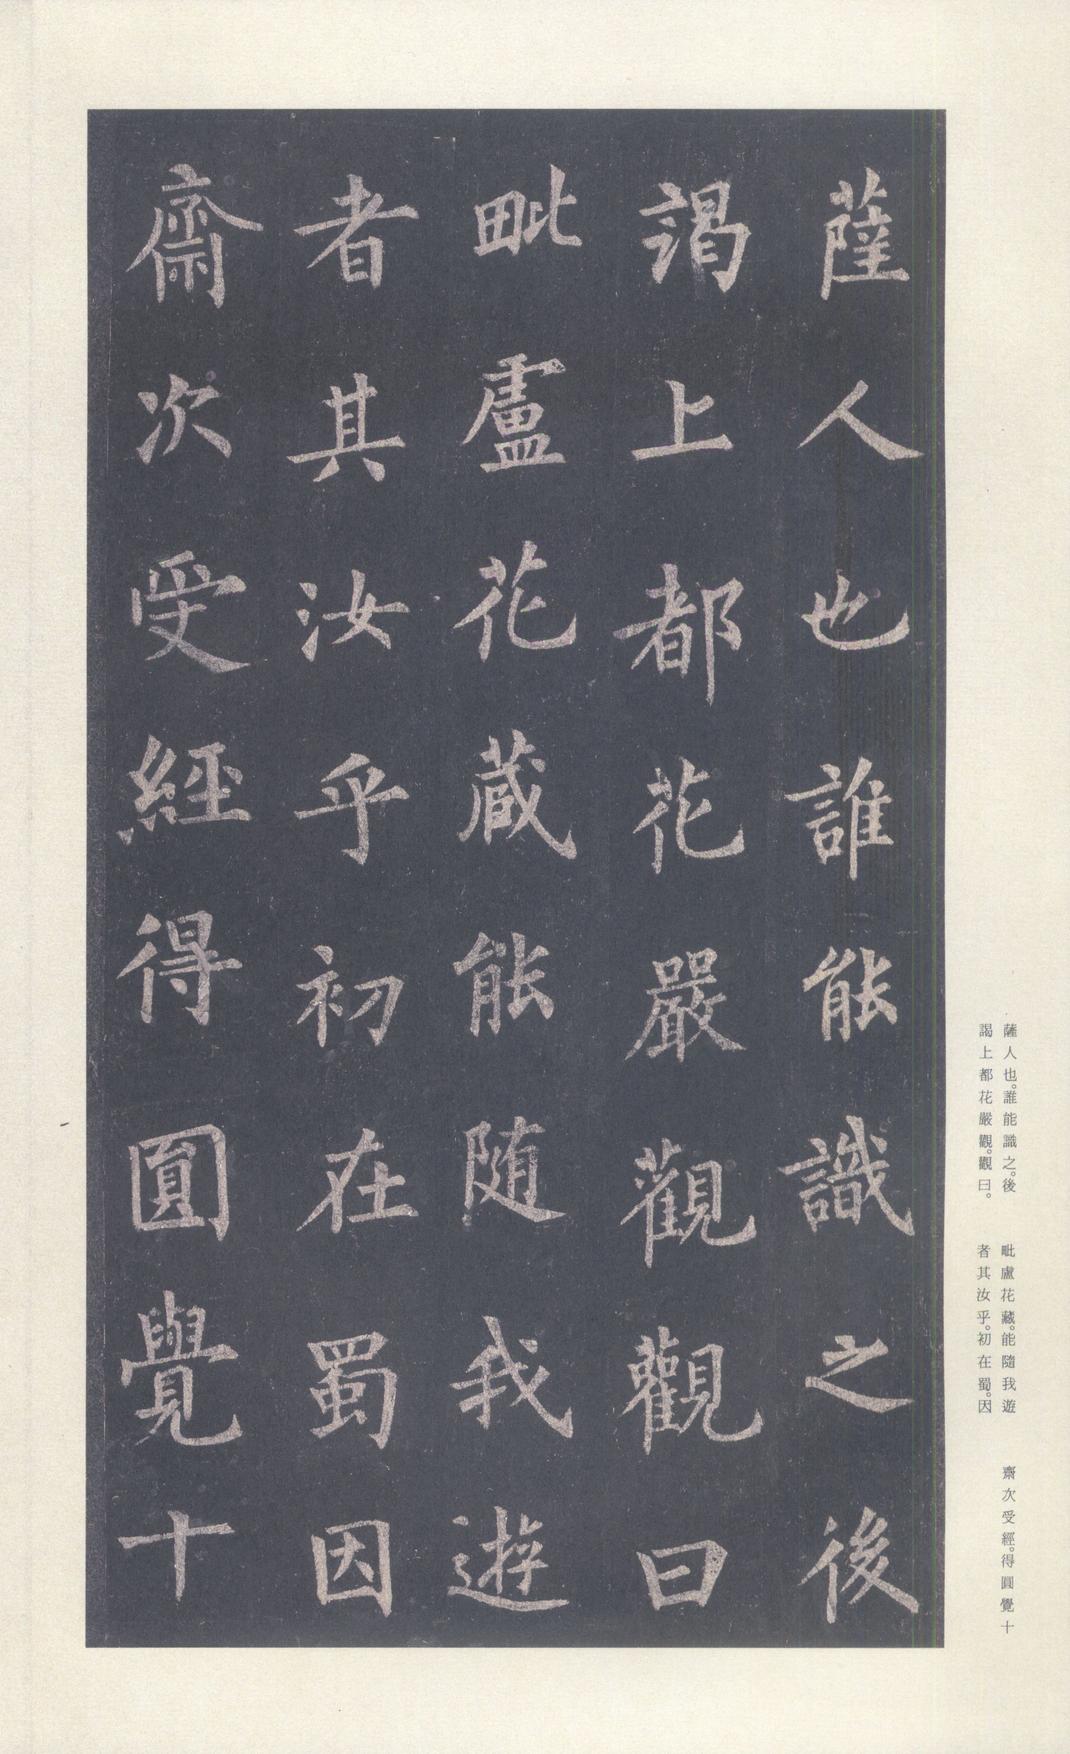 薩人也誰能識之後
謁上都花嚴觀觀曰
毗盧花蔵能随我遊
者其汝乎初在蜀因
齋次受經得圓覺十
薩人也。誰能識之。後
謁上都花嚴觀。觀曰。
毗盧花藏。能隨我遊
者其汝乎。初在蜀。因
齋次受經。得圓覺十